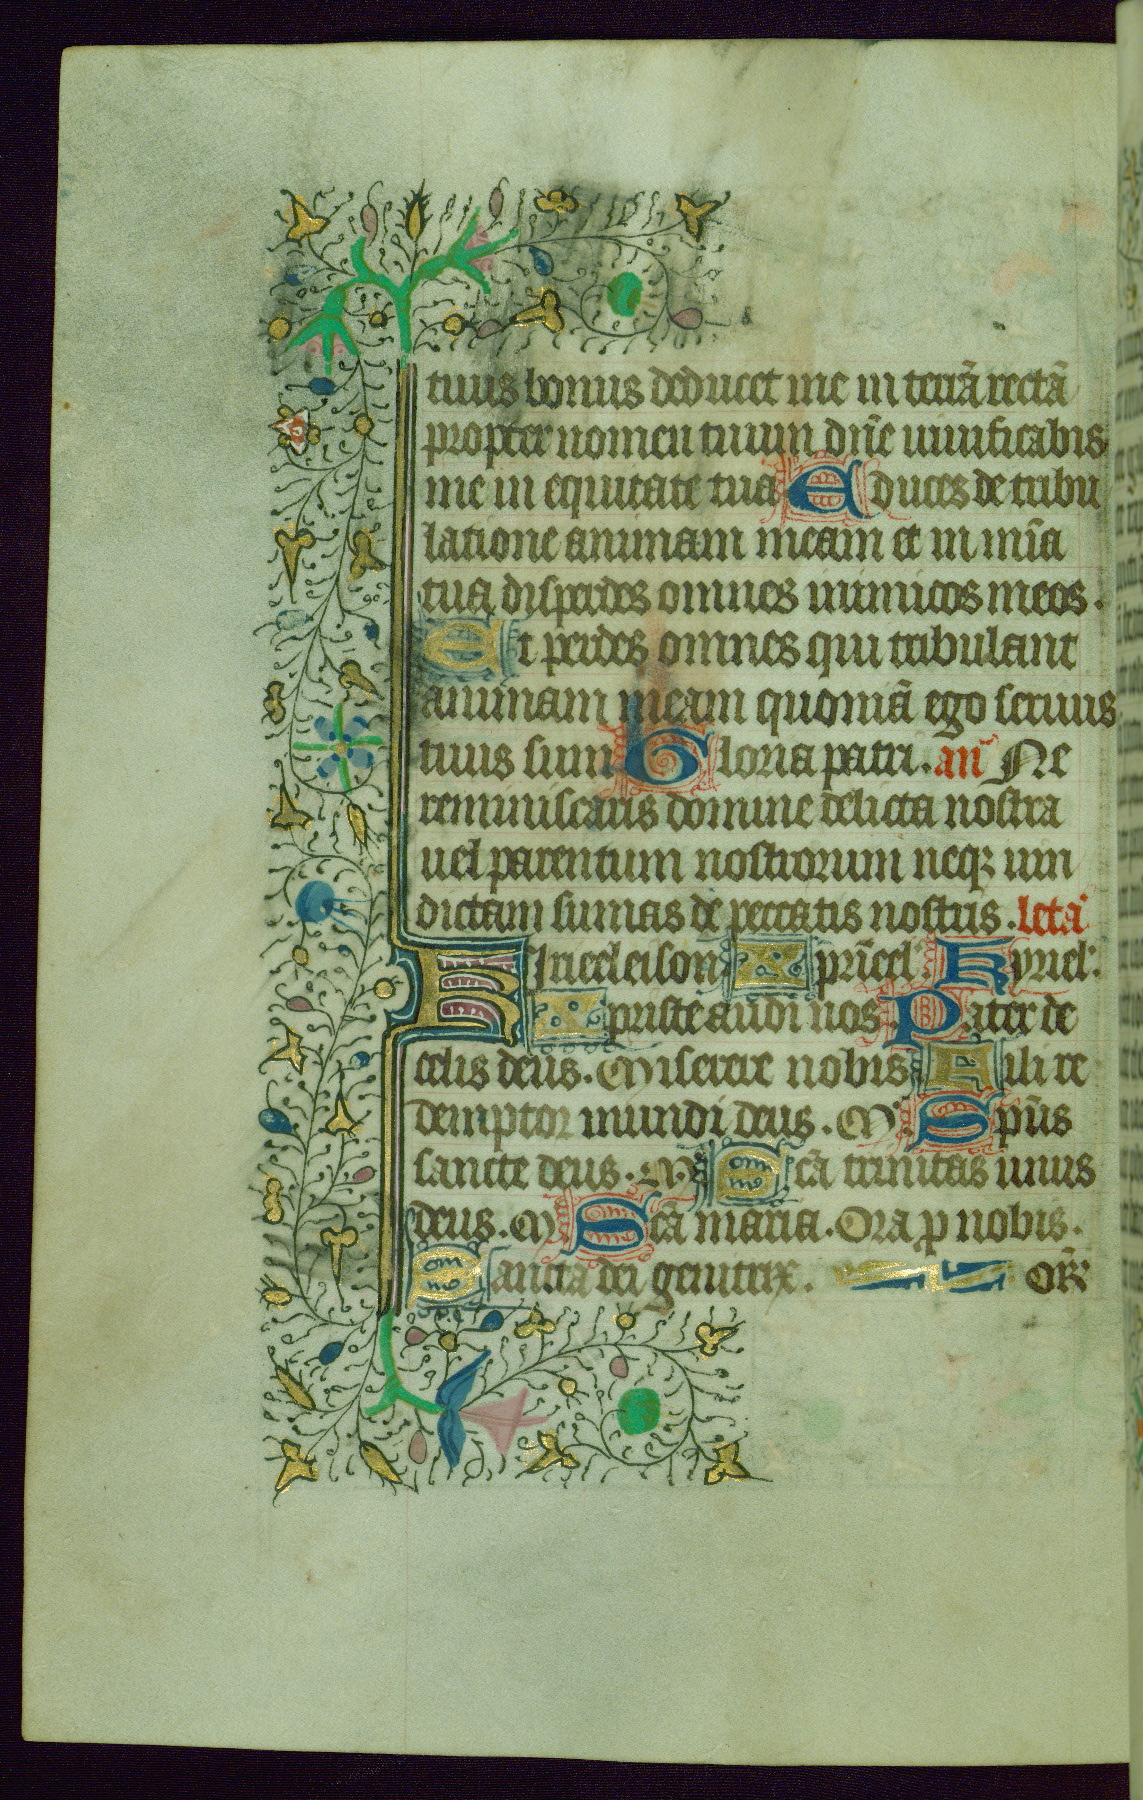 tuus bonus deducet me in terrā rectā
propter nomen tuum dn̄e uiuificabis
me in equitate tua Educes de tribu
latione animam meam et in mīa
tua disperdes omnes inimicos meos.
Et perdes omnes qui tribulant
animam meam quoniā ego seruus
tuus sum Gloria patri. añ Ne
reminiscaris domine delicta nostra
uel parentum nostrorum neqꝫ uin
dictam sumas de peccatis nostris. leta
Kirieeleison Xpr̄ieel' Kyriel'.
Xpriste audi nos Pater de
celis deus. Miserere nobis Fili re
demptor mundi deus. M' Spūs
sancte deus. M' Scā trinitas unus
deus. M' Scā maria. Ora ꝓ nobis.
Sancta dei genitrix. OR'